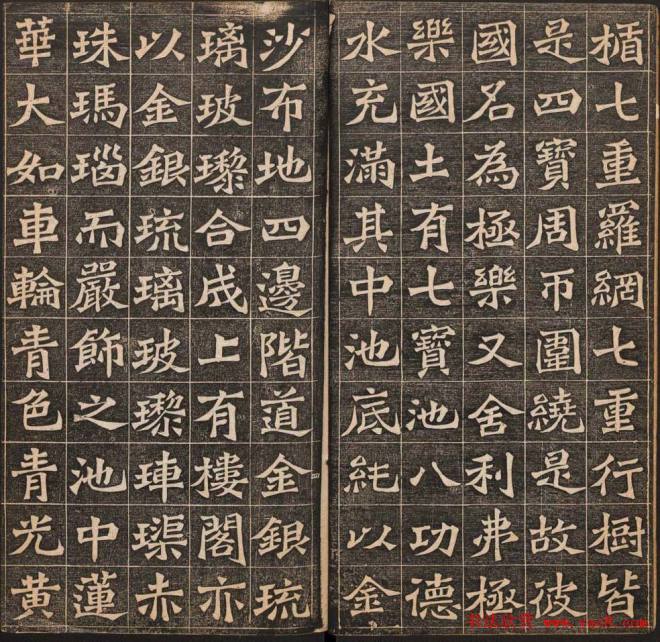 楯七重羅網七重行樹皆
是四寶周帀圍繞是故彼
國名為極樂又舍利弗極
樂國土有七寶池八功德
水充滿其中池底純以金
沙布地四邊階道金銀琉
璃玻瓈合成上有樓閣亦
以金銀琉璃玻瓈𤥭璖赤
珠瑪瑙而嚴飾之池中蓮
華大如車輪青色青光黃
书法欣赏 www.yac8.com